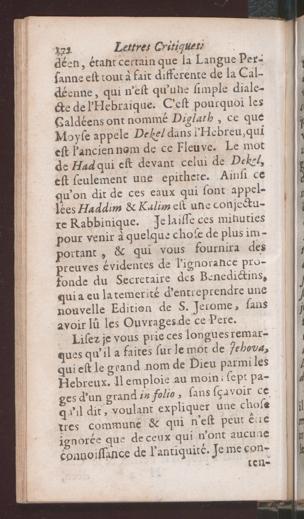 172 Lettres Critiques;
déen, étant certain que la Langue Per-
sanne est tout à fait differente de la Cal-
déenne, qui n'est qu'une simple diale-
cte de l'Hebraique. C'est pourquoi les
Caldéens ont nommé Diglath, ce que
Moyse appele Dekel dans l'Hebreu, qui
est l'ancien nom de ce Fleuve. Le mot
de Had qui est devant celui de Dekel,
est seulement une epithete. Ainsi ce
qu'on dit de ces eaux qui sont appel-
lées Haddim & Kalim est une conjectu-
re Rabbinique. Je laisse ces minuties
pour venir à quelque chose de plus im-
portant, & qui vous fournira des
preuves évidentes de l'ignorance pro-
fonde du Secretaire des Benedictins,
qui a eu la temerité d'entreprendre une
nouvelle Edition de S. Jerome, sans
avoir lû les Ouvrages de ce Pere.
Lisez je vous prie ces longues remar-
ques qu'il a faites sur le mot de Jehova,
qui est le grand nom de Dieu parmi les
Hebreux. Il emploie au moins sept pa-
ges d'un grand in folio, sans sçavoir ce
qu'il dit, voulant expliquer une chose
tres commune & qui n'est peut être
ignorée que de ceux qui n'ont aucune
connoissance de l'antiquité. Je me con-
ten-